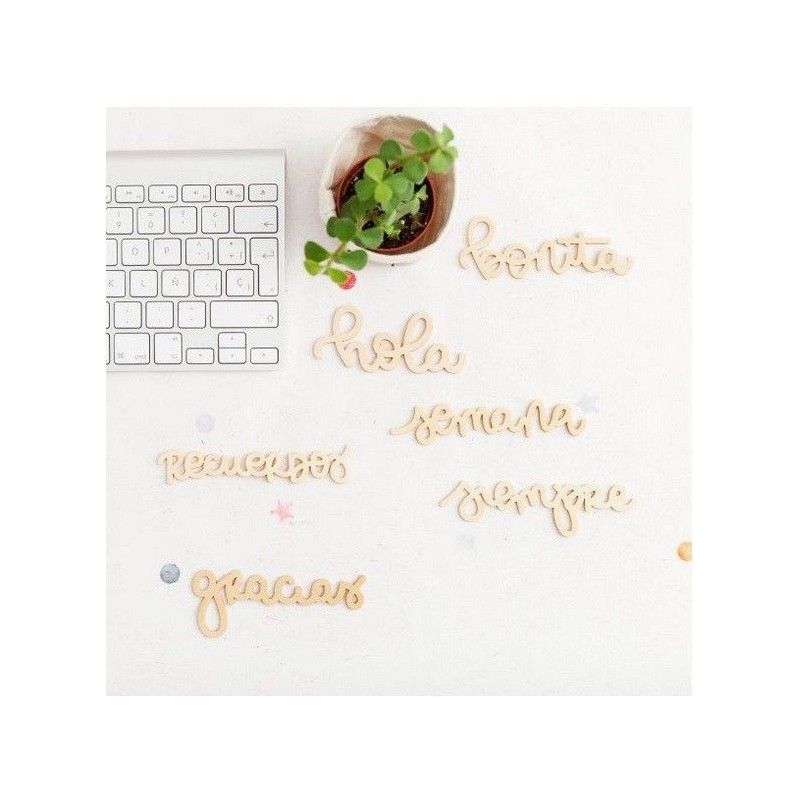 bonita
hola
semana
recuerdos
siempre
gracias